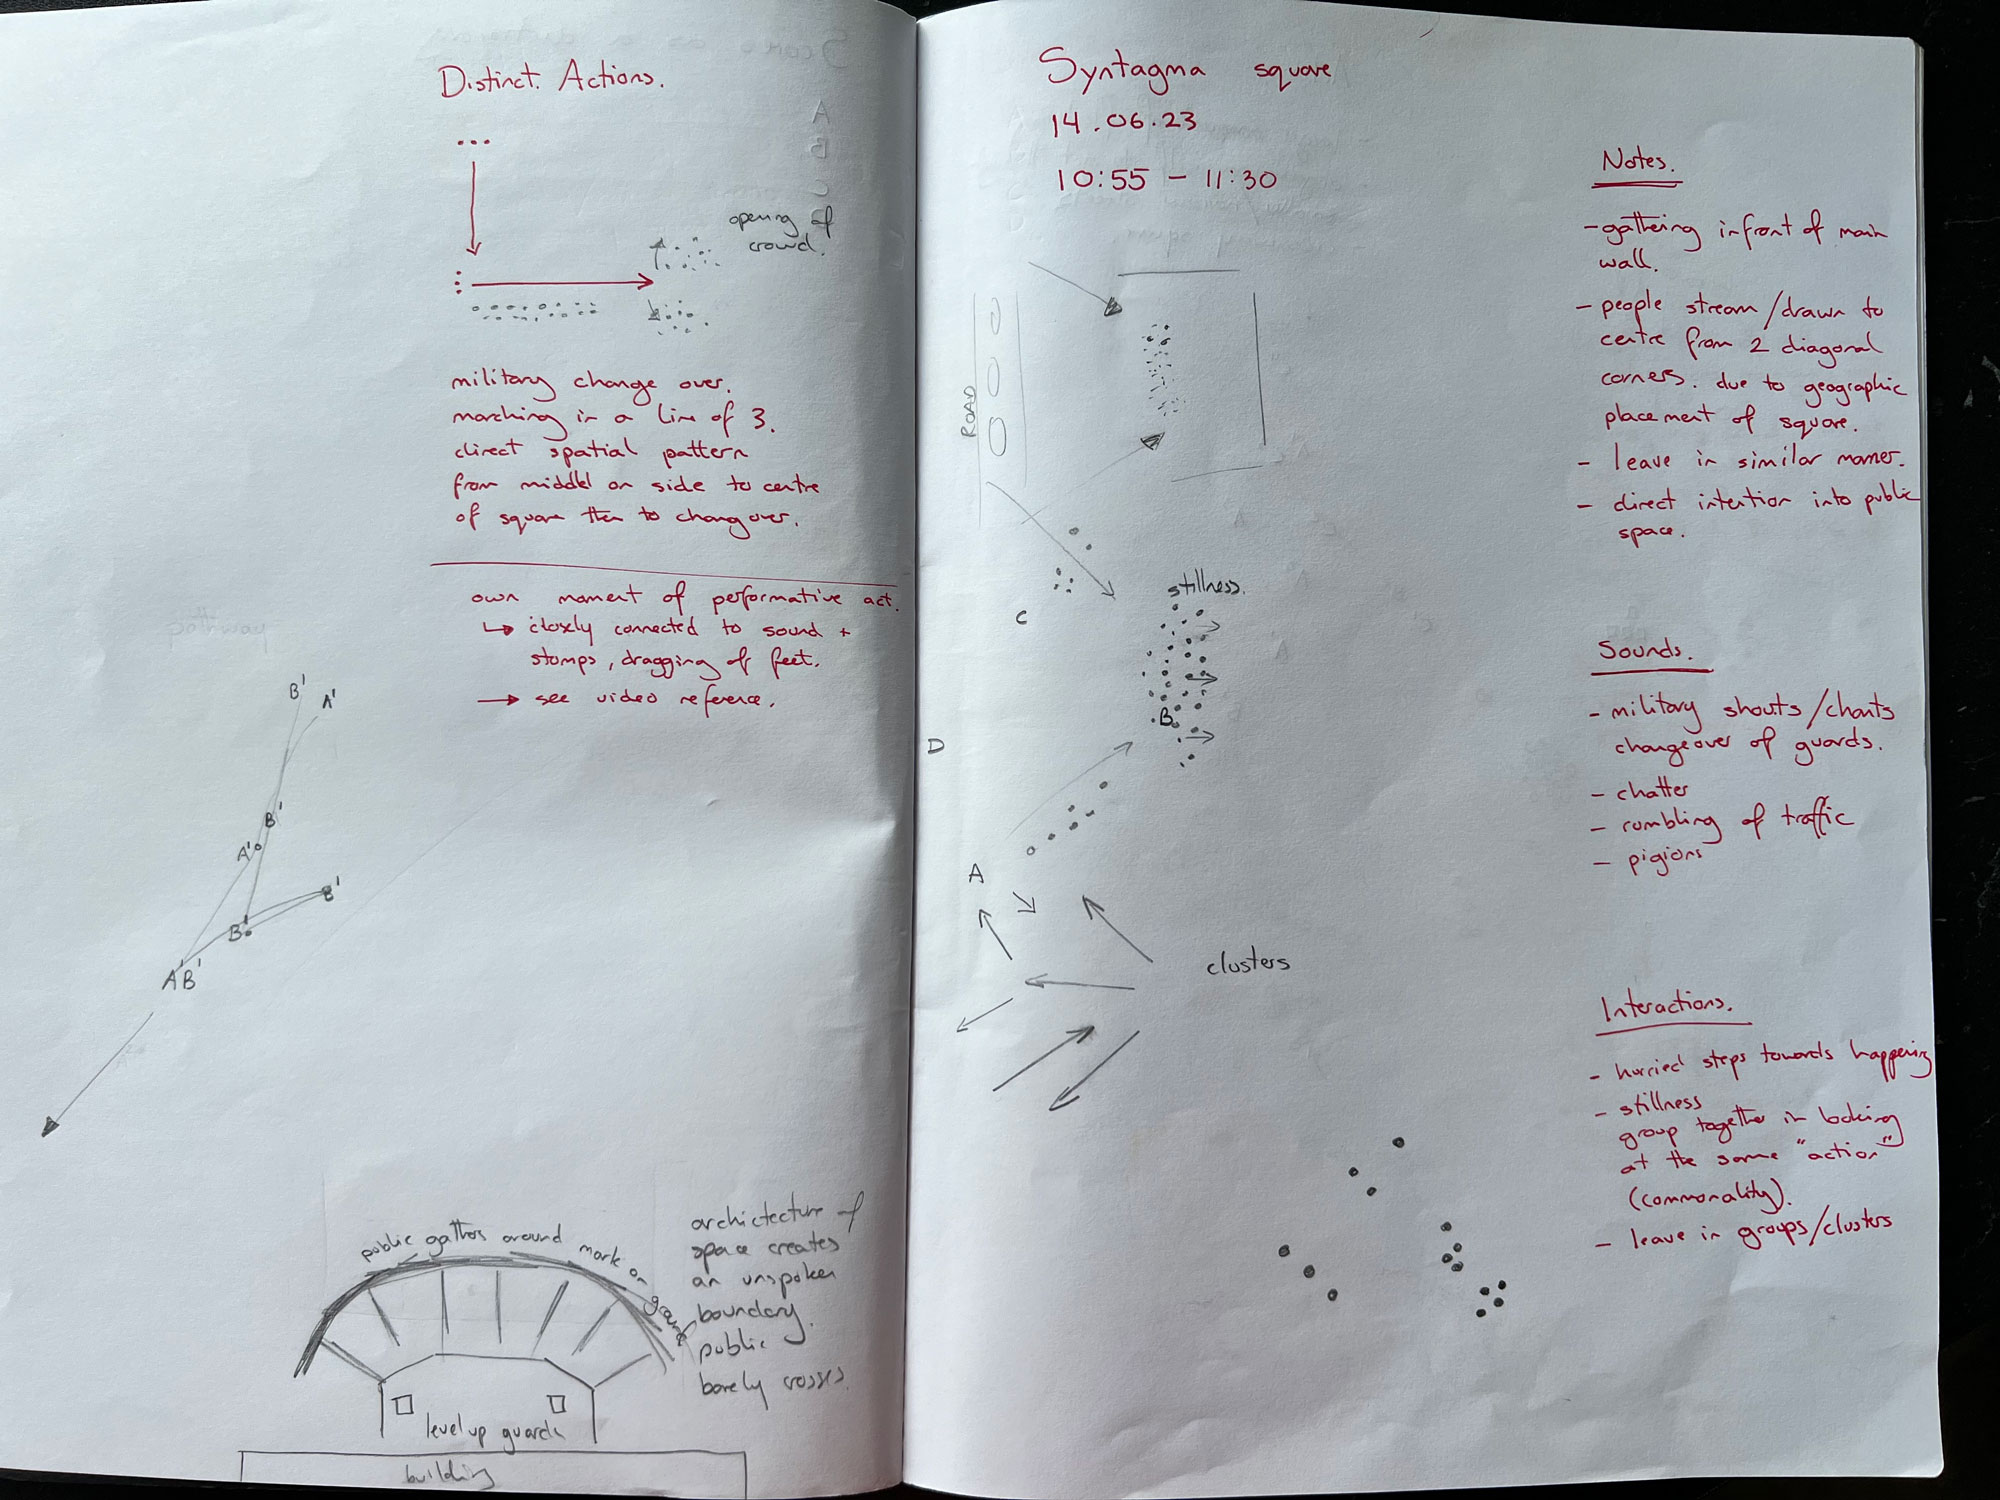 Distinct. Actions.
opening of
crowd.
military change over.
marching in a line of 3.
direct spatial pattern
from middel on side to centre
of square then to changover.
own moment of performative act.
↳ closely connected to sound +
stomps, dragging of feet.
→ see video reference.
B'
A'
B'
A'
B'
B
A'B'
public gathers around mark on ground
architecture of
space creates
an unspoken
boundary.
public
barely crosses.
level up guards
building
Syntagma square
14.06.23
10:55 - 11:30
ROAD
stillness.
C
B
D
A
clusters
Notes.
- gathering infront of main
wall.
- people stream/drawn to
centre from 2 diagonal
corners. due to geographic
placement of square.
- leave in similar manner.
- direct intention into public
space.
Sounds.
- military shouts/chants
changeover of guards.
- chatter
- rumbling of traffic
- pigions
Interactions.
- hurried steps towards happening
- stillness
group together in looking
at the same "action"
(commonality).
- leave in groups/clusters